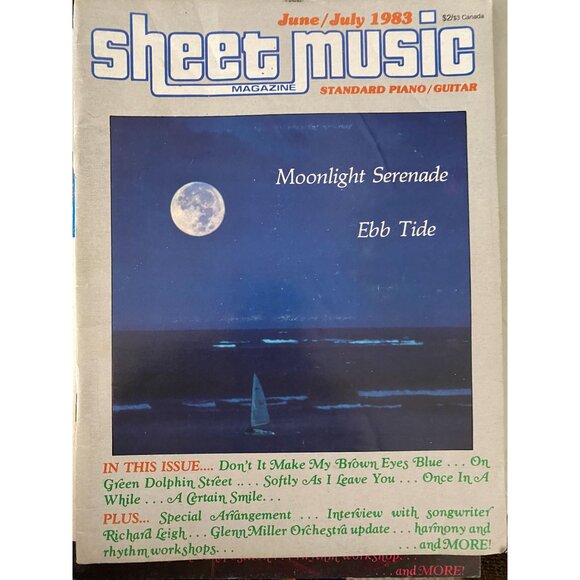 June/July 1983
$2/$3 Canada
sheet music
MAGAZINE
STANDARD PIANO/GUITAR
Moonlight Serenade
Ebb Tide
IN THIS ISSUE.... Don't It Make My Brown Eyes Blue . . . On
Green Dolphin Street .... Softly As I Leave You . . . Once In A
While . . . A Certain Smile. . .
PLUS... Special Arrangement . . . Interview with songwriter
Richard Leigh... Glenn Miller Orchestra update . . . harmony and
rhythm workshops. . . . . . and MORE!
workshop...
. . . and MORE!